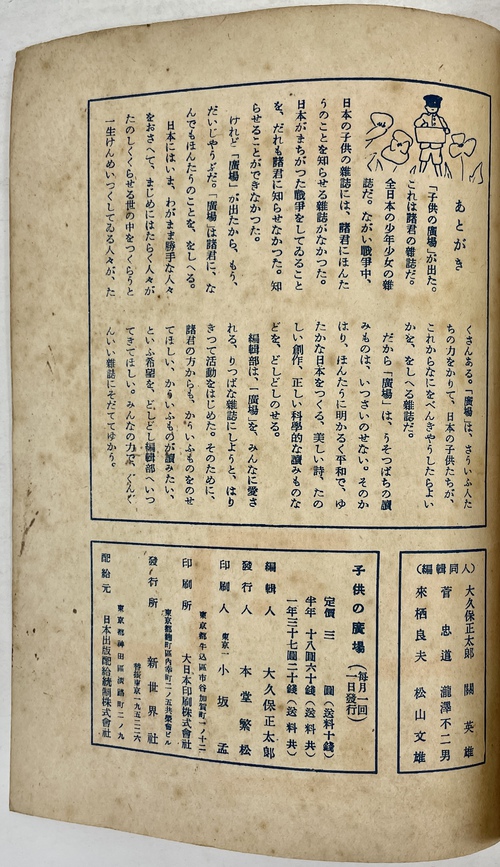 あとがき
「子供の廣場」が出た。
これは諸君の雜誌だ。
全日本の少年少女の雜
誌だ。ながい戰爭中、
日本の子供の雜誌には、諸君にほんた
うのことを知らせる雜誌がなかつた。
日本がまちがつた戰爭をしてゐること
を、だれも諸君に知らせなかつた。知
らせることができなかつた。
けれど「廣場」が出たから、もう、
だいじやうぶだ。「廣場」は諸君に、な
んでもほんたうのことを、をしへる。
日本にはいま、わがまま勝手な人々
をおさへて、まじめにはたらく人々が
たのしくくらせる世の中をつくらうと
一生けんめいつくしてゐる人々が、た
くさんある。「廣場」は、さういふ人た
ちの力をかりて、日本の子供たちが、
これからなにをべんきやうしたらよい
かを、をしへる雜誌だ。
だから「廣場」は、うそつぱちの讀
みものは、いつさいのせない。そのか
はり、ほんたうに明かるく平和で、ゆ
たかな日本をつくる、美しい詩、たの
しい創作、正しい科學的な讀みものな
どを、どしどしのせる。
編輯部は、「廣場」を、みんなに愛さ
れる、りつぱな雜誌にしようと、はり
きつて活動をはじめた。そのために、
諸君の方からも、かういふものをのせ
てほしい、かういふものが讀みたい、
といふ希望を、どしどし編輯部へいつ
てきてほしい。みんなの力で、ぐんぐ
んいい雜誌にそだててゆかう。
（編輯同人）
大久保正太郎　關　英雄
菅　忠道　瀧澤不二男
來栖良夫　松山文雄
子供の廣場（每月一回一日發行）
定價　三　圓（送料十錢）
半年　十八圓六十錢（送料共）
一年三十七圓二十錢（送料共）
編輯人　大久保正太郎
發行人　本堂繁松
印刷人　東京一　小坂　孟
東京都牛込區市谷加賀町一ノ十二
印刷所　大日本印刷株式會社
東京都麴町區內幸町二ノ五共榮會ビル
發行所　新世界社
振替東京一九五二二六
東京都神田區淡路町二ノ九
配給元　日本出版配給統制株式會社